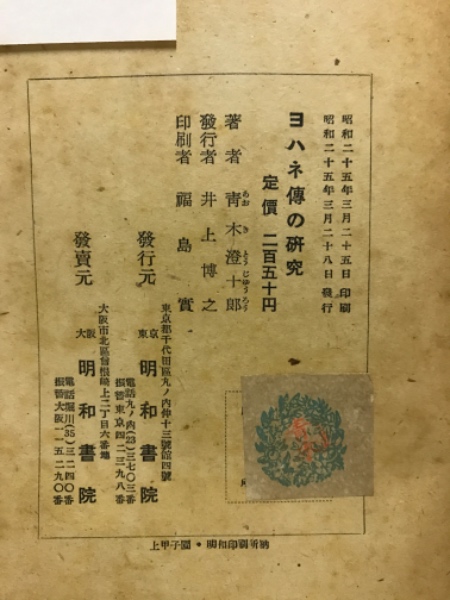 昭和二十五年三月二十五日 印刷
昭和二十五年三月二十八日 發行
ヨハネ傳の硏究
定價 二百五十円
著者 靑木澄十郎
あお き とう じゅう ろう
發行者 井上博之
印刷者 福島實
東京都千代田區丸ノ内仲十三號館四號
發行元 東京 明和書院
電話丸ノ内(23)三七〇三番
振替東京四二三九八番
大阪市北區曾根崎上二丁目六番地
發賣元 大阪 明和書院
電話堀川(35)三二四〇番
振替大阪一一五二九〇番
上甲子園・明和印刷所納